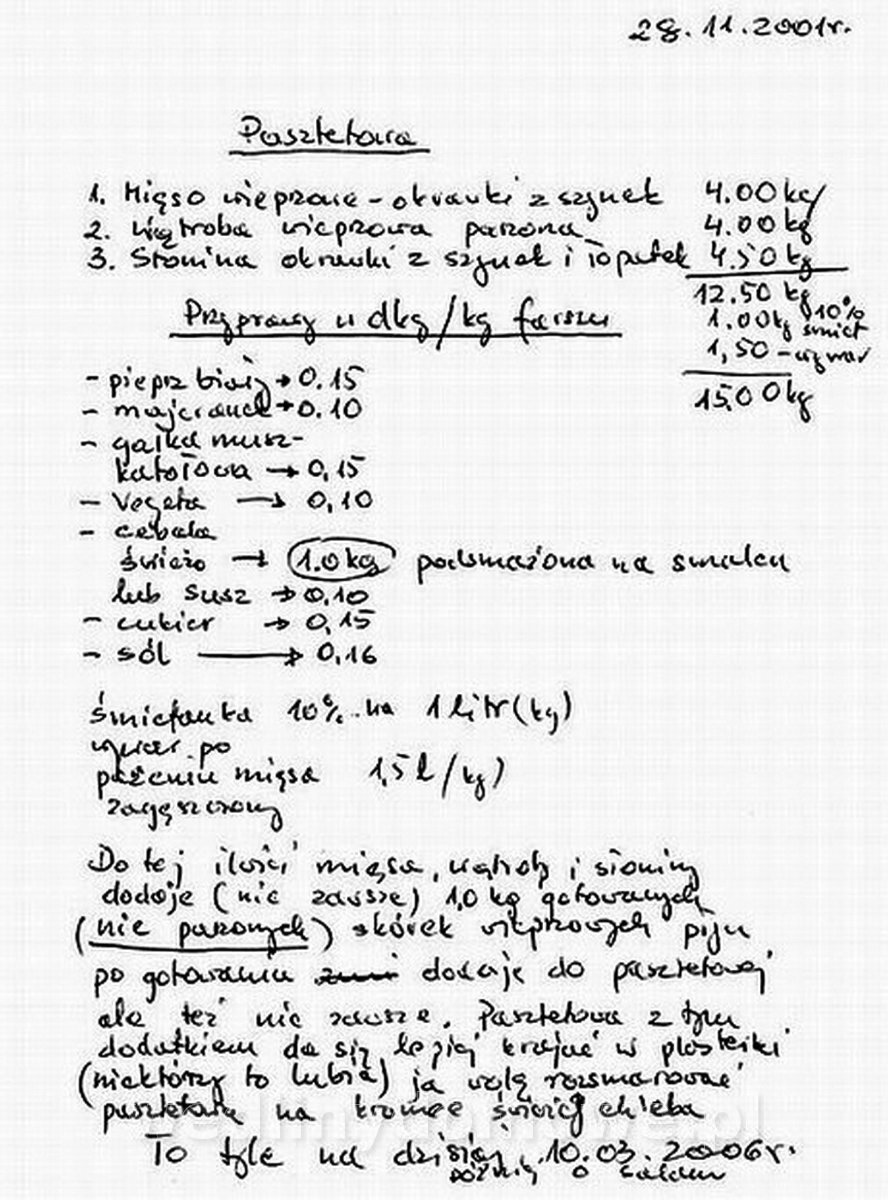 28.11.2001r.
Pasztetowa
1. Mięso wieprzowe - okrawki z szynek 4.00 kg
2. Wątroba wieprzowa parzona 4.00 kg
3. Słonina okrawki z szynek i łopatek 4.50 kg
12.50 kg
Przyprawy w dkg/kg farszu
1.00 kg 10% śmiet
1,50 - wywar
15.00 kg
- pieprz biały → 0.15
- majeranek → 0.10
- gałka musz-
katołowa → 0,15
- Vegeta → 0,10
- cebula
świeża → 1.0 kg podsmażona na smalcu
lub susz → 0,10
- cukier → 0,15
- sól → 0,16
śmietanka 10% na 1 litr (kg)
wywar po
parzeniu mięsa 1,5 l/kg)
zagęszczony
Do tej ilości mięsa, wątroby i słoniny
dodaje (nie zawsze) 1,0 kg gotowanych
(nie parzonych) skórek wieprzowych
po gotowaniu dodaje do pasztetowej
ale też nie zawsze. Pasztetowa z tym
dodatkiem da się lepiej krajać w plasterki
(niektórzy to lubią) ja wolę rozsmarować
pasztetową na kromce świeżej chleba
To tyle na dzisiaj 10.03.2006r.